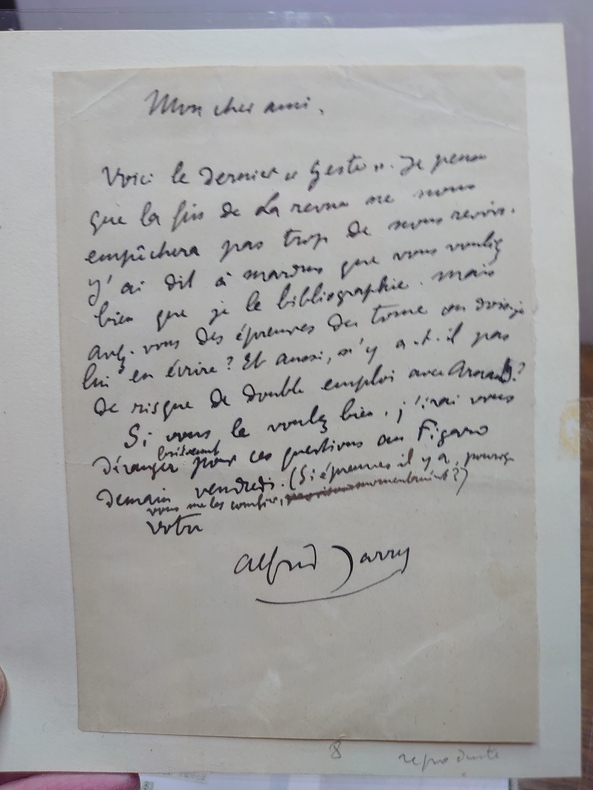 Mon cher ami,
Voici le dernier « Geste ». Je pense
que la fin de La revue ne nous
empêchera pas trop de nous revoir.
J'ai dit à mardrus que vous vouliez
bien que je le bibliographie. mais
avez-vous des épreuves du tome ou dois-je
lui en écrire ? Et aussi, n'y a-t-il pas
de risque de double emploi avec Arnauld ?
Si vous le voulez bien, j'irai vous
brièvement
déranger pour ces questions au Figaro
demain vendredi. (Si épreuves il y a, pourriez
vous me les confier, momentanément ?)
Votre
Alfred Jarry
8
reproduite